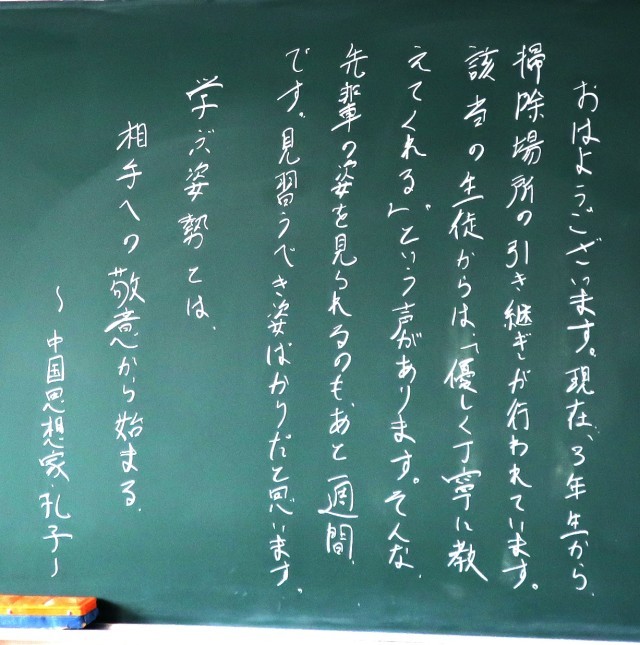 おはようございます。現在、3年生から、
掃除場所の引き継ぎが行われています。
該当の生徒からは、「優しく丁寧に教
えてくれる」という声があります。そんな、
先輩の姿を見られるのも、あと一週間、
です。見習うべき姿ばかりだと思います。
学ぶ姿勢とは、
相手への敬意から始まる、
~中国思想家・孔子~